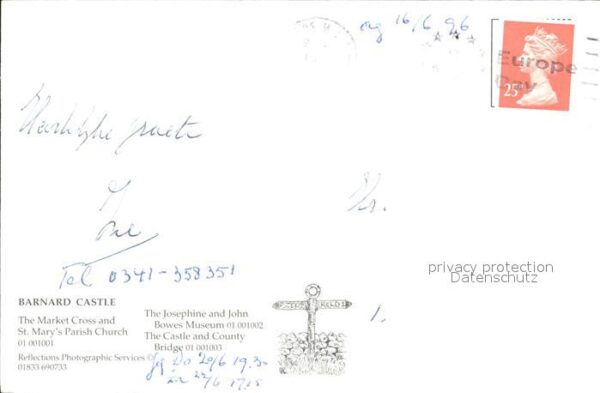 16/6 96
Europe
Day
25
Hartelijke groeten
Tel 0341-358351
privacy protection
Datenschutz
BARNARD CASTLE
The Market Cross and
St. Mary's Parish Church
01 001001
The Josephine and John
Bowes Museum 01 001002
The Castle and County
Bridge 01 001003
Reflections Photographic Services ©
01833 690733
Do 20/6 19.30
22/6 17.15
1.